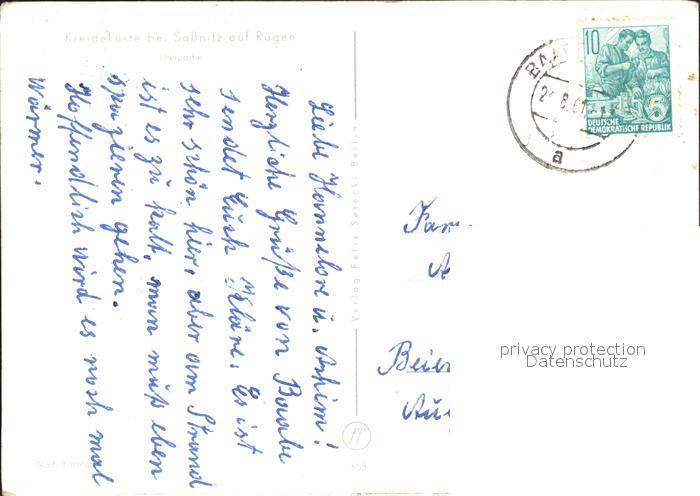 Kreideküste bei Saßnitz auf Rügen
Uferpartie
Liebe Hannelore u. Achim!
Herzliche Grüße von Baabe
sendet Euch Kläre. Es ist
sehr schön hier, aber am Strand
ist es zu kalt, man muß eben
spazieren gehen.
Hoffendlich wird es noch mal
Wärmer.
Verlag Felix Setecki, Berlin
553
10
5
DEUTSCHE
DEMOKRATISCHE REPUBLIK
a
Fam
Beier
privacy protection
Datenschutz